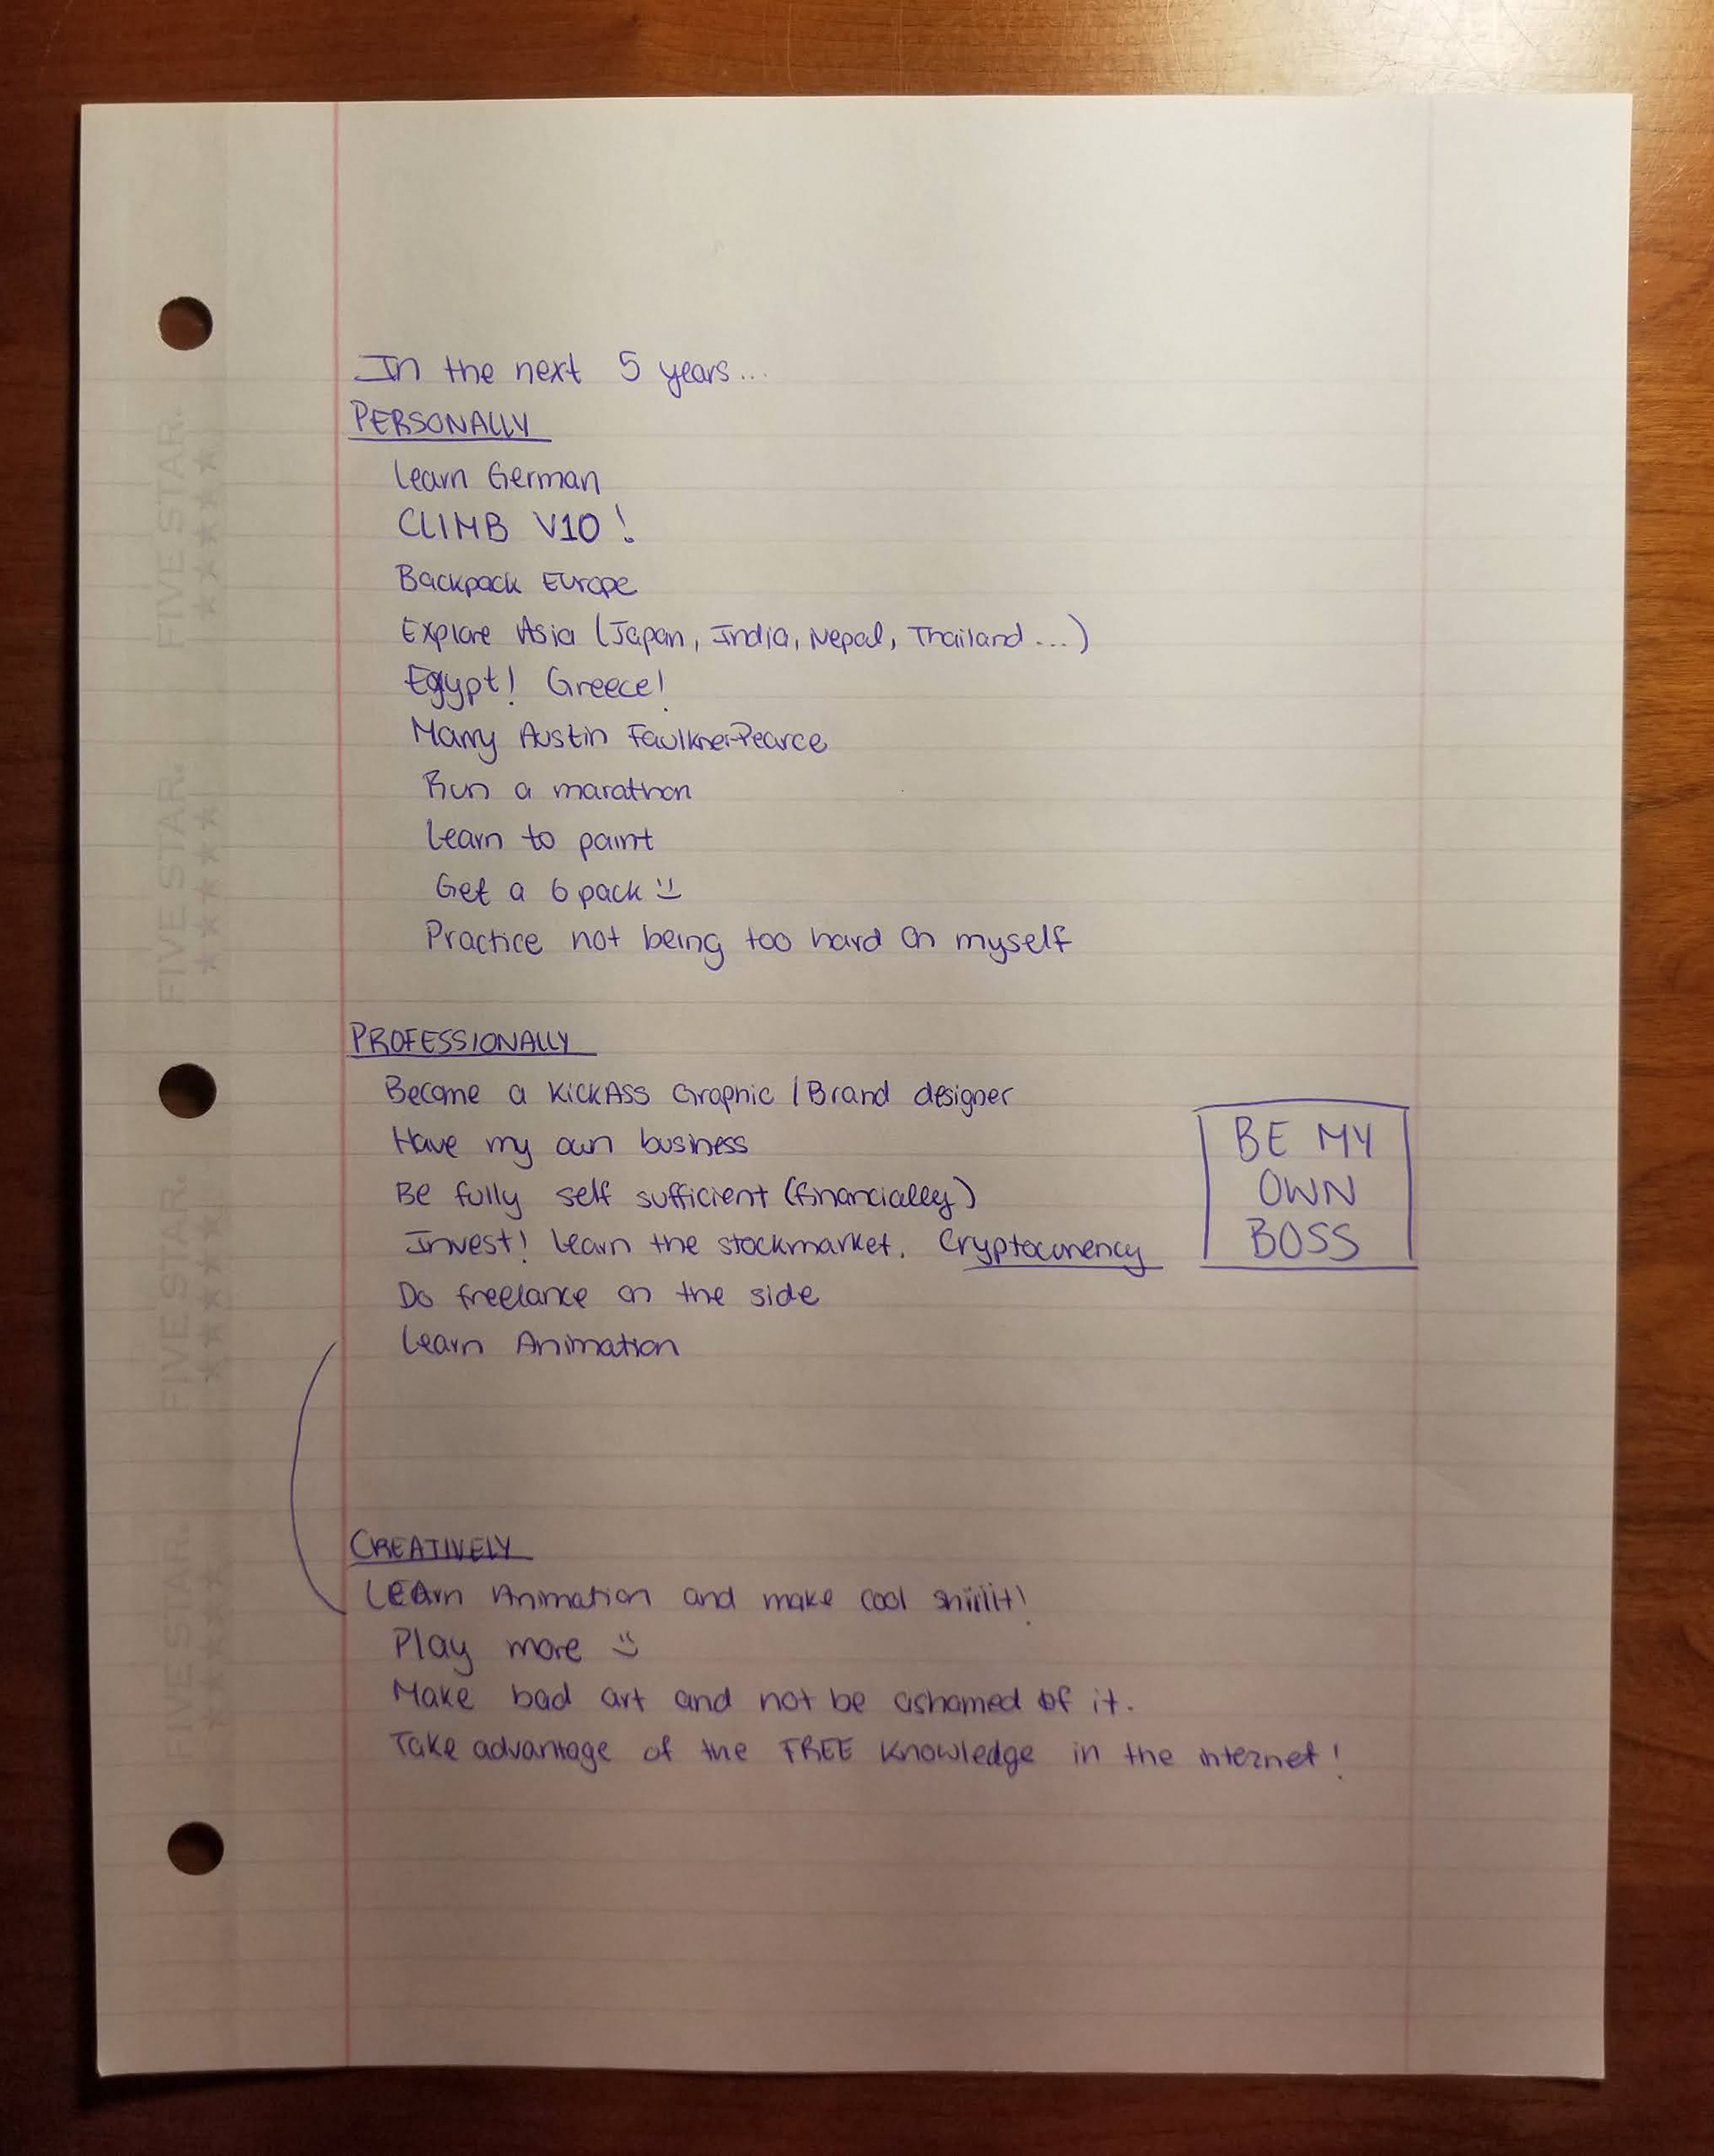 In the next 5 years...
PERSONALLY
Learn German
CLIMB V10!
Backpack Europe
Explore Asia (Japan, India, Nepal, Thailand...)
Egypt! Greece!
Marry Austin Faulkner-Pearce
Run a marathon
Learn to paint
Get a 6 pack :)
Practice not being too hard on myself
PROFESSIONALLY
Become a KickAss Graphic / Brand designer
Have my own business
Be fully self sufficient (financially)
Invest! Learn the stockmarket. Cryptocurrency
Do freelance on the side
Learn Animation
BE MY
OWN
BOSS
CREATIVELY
LEArn Animation and make cool shiiiit!
Play more :)
Make bad art and not be ashamed of it.
Take advantage of the FREE knowledge in the internet!
FIVE STAR.
FIVE STAR.
FIVE STAR.
FIVE STAR.